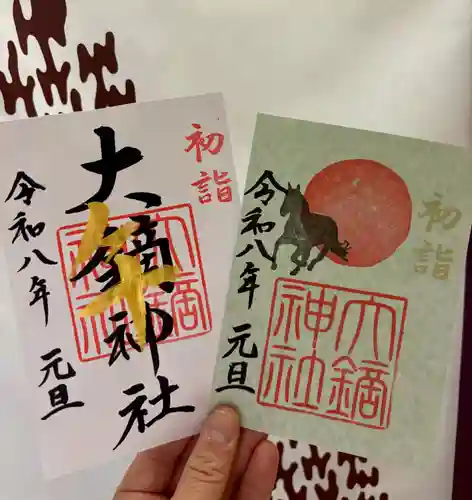 初詣
大鏑神社
午
大鏑神社
令和八年 元旦
初詣
令和八年 元旦
大鏑神社